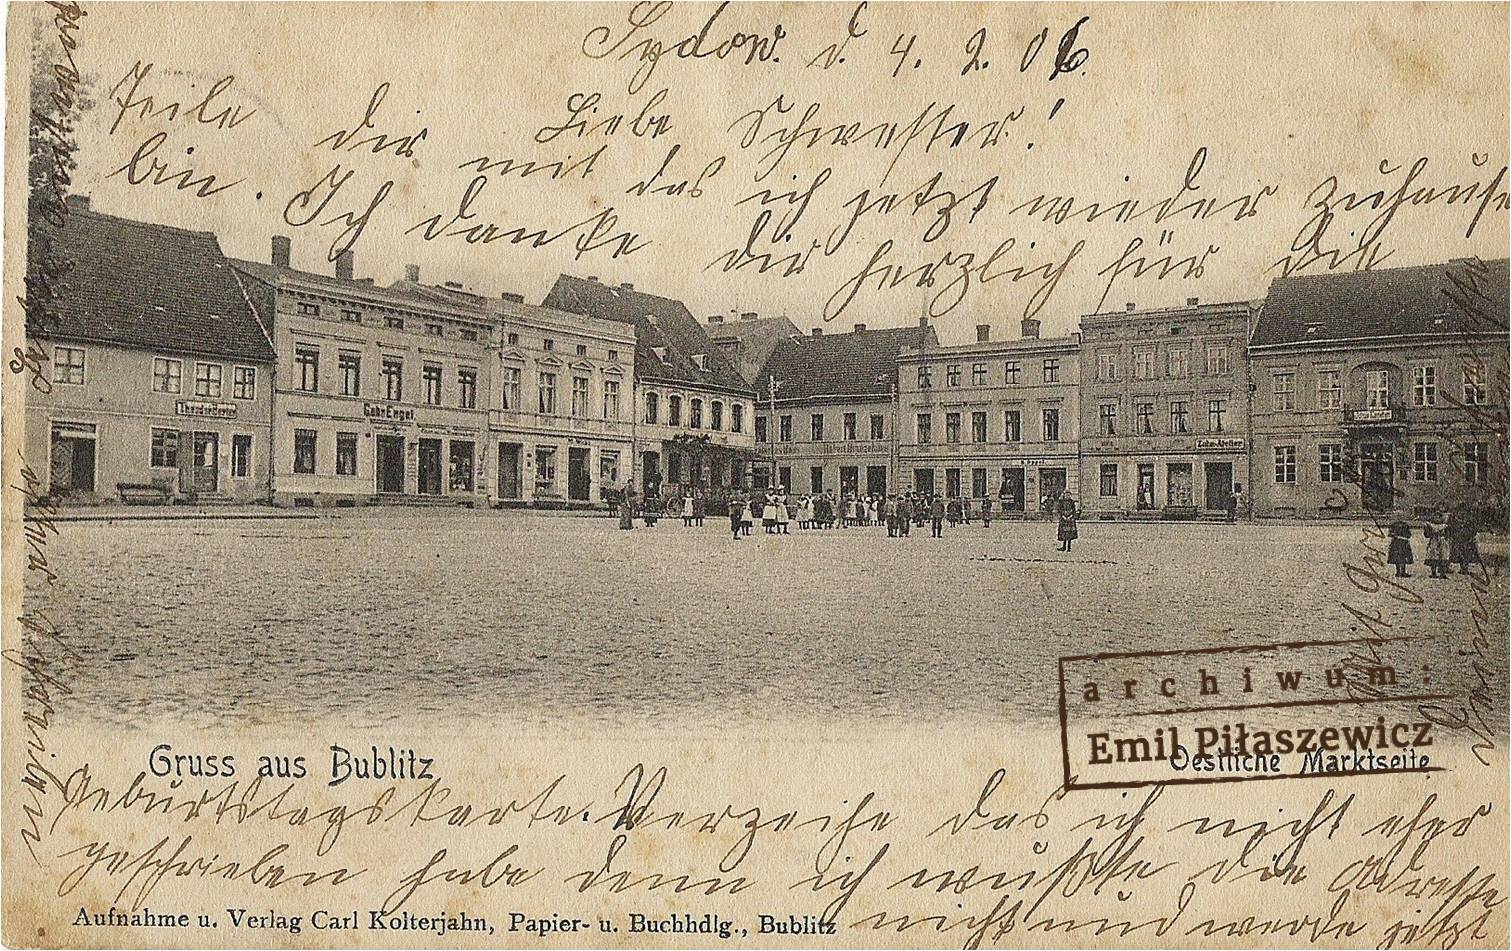 Sydow. d. 4. 2. 06.
Liebe Schwester!
Teile dir mit das ich jetzt wieder zuhause
bin. Ich danke dir herzlich für die
Theodor
Gebr. Engel.
Zahn-Atelier
Gruss aus Bublitz
Oestliche Marktseite
archiwum:
Emil Piłaszewicz
Geburtstagskarte. Verzeihe das ich nicht eher
geschrieben habe denn ich wußte die Adresse
nicht und werde jetzt
Aufnahme u. Verlag Carl Kolterjahn, Papier- u. Buchhdlg., Bublitz
geschrieben
Mit Gruß